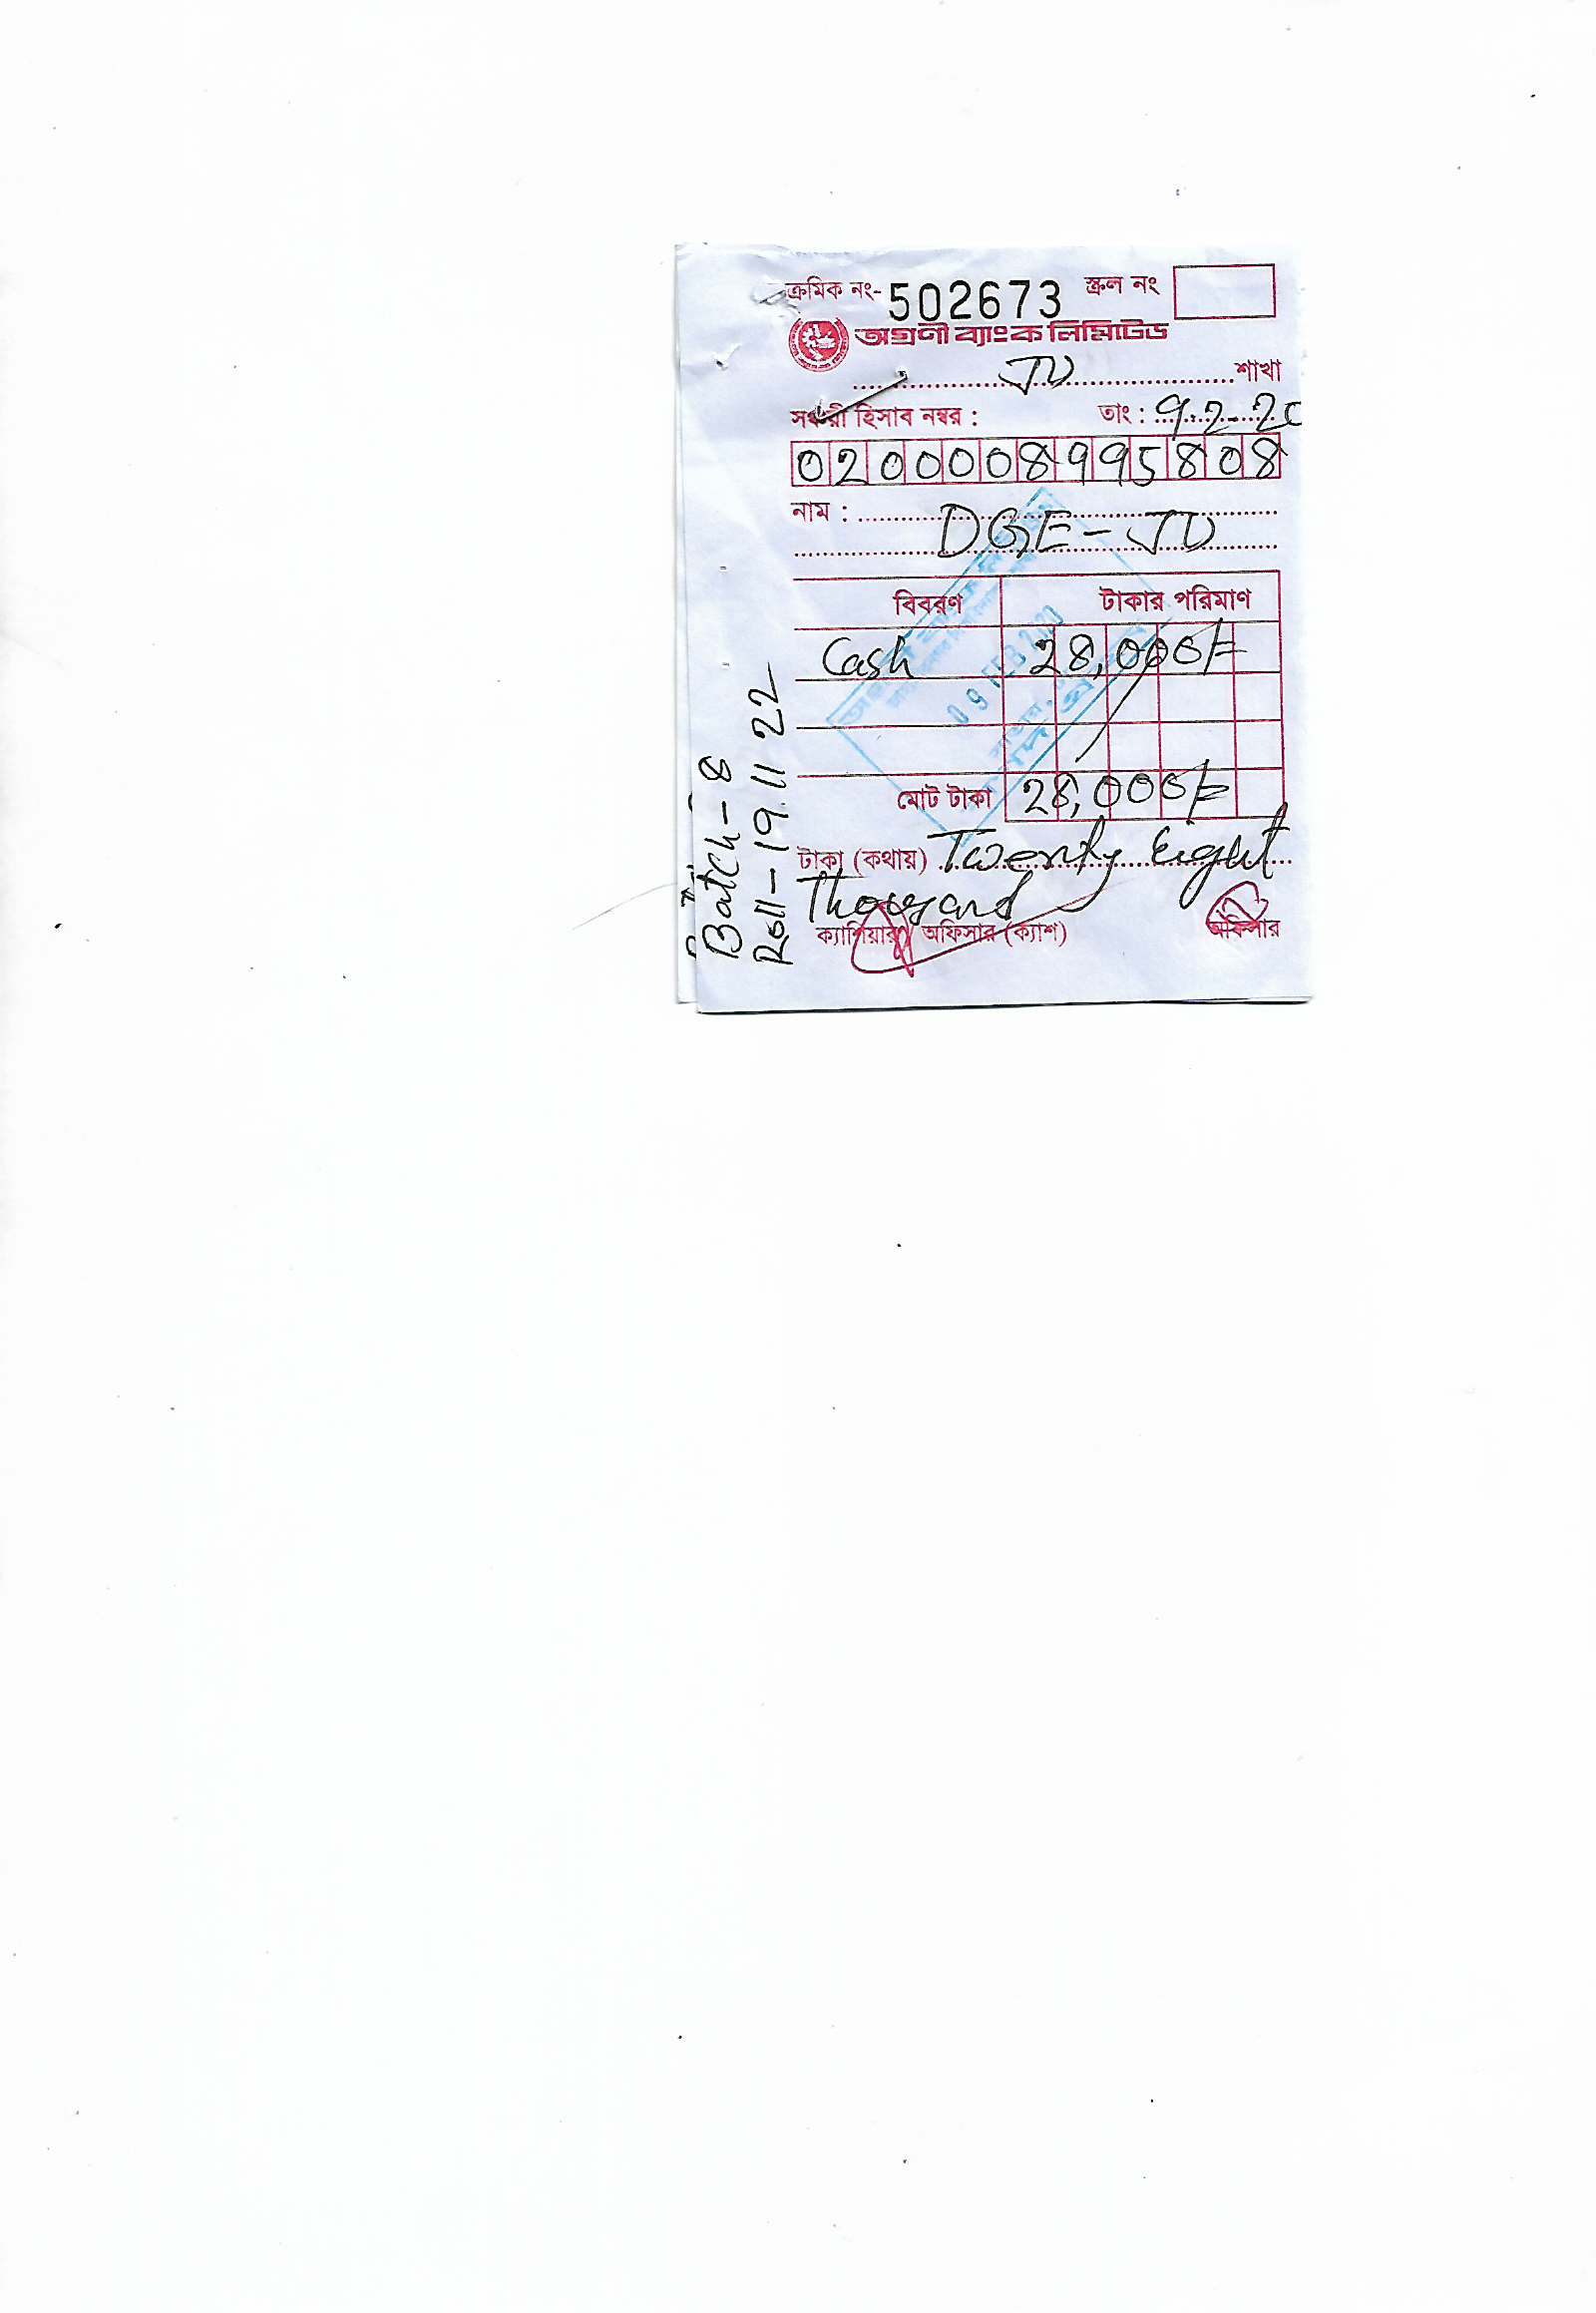 ক্রমিক নং- 502673 স্ক্রল নং
অগ্রণী ব্যাংক লিমিটেড
JU শাখা
সঞ্চয়ী হিসাব নম্বর : তাং : 9.2-20
0200008995808
নাম :
DGE-JU
বিবরণ টাকার পরিমাণ
Cash 28,000/=
09 FEB 2020
মোট টাকা 28,000/=
টাকা (কথায়) Twenty Eight
Thousand
ক্যাশিয়ার অফিসার (ক্যাশ) অফিসার
Batch-8
Roll-191122